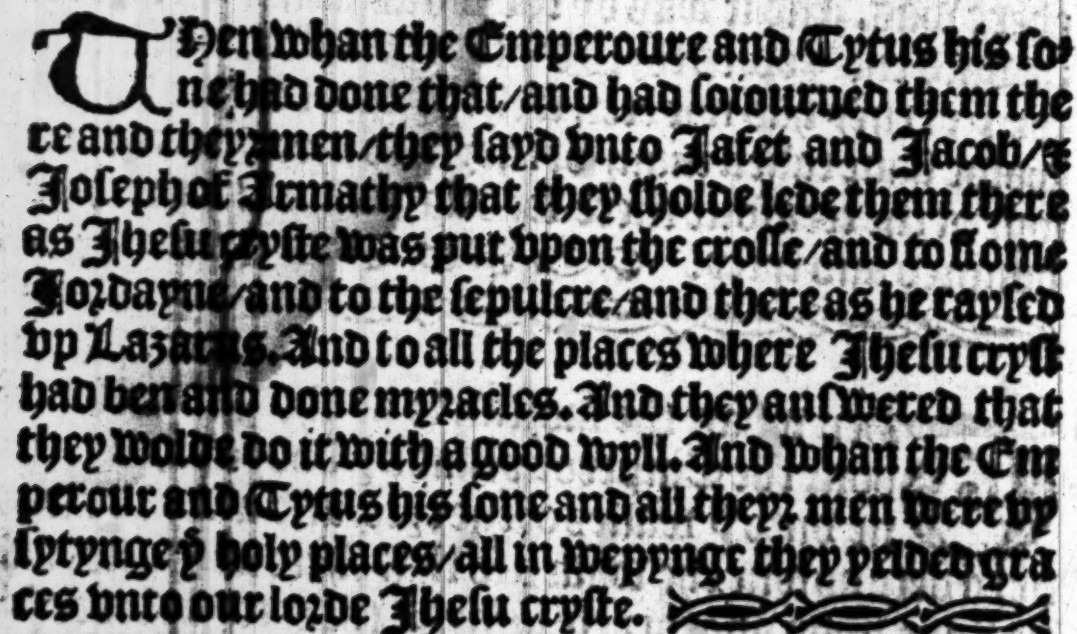 THen whan the Emperoure and Tytus his so⸗
ne had done that/and had soiourned them the
re and theyr men/they sayd vnto Jafet and Jacob/⁊
Joseph of Armathy that they sholde lede them there
as Jhesu cryste was put vpon the crosse/and to flome
Jordayne/and to the sepulcre/and there as he raysed
vp Lazarus. And to all the places where Jhesu cryst
had ben and done myracles. And they answered that
they wolde do it with a good wyll. And whan the Em
perour and Tytus his sone and all theyr men were vy
sytynge yͤ holy places/all in wepynge they yelded gra
ces vnto our lorde Jhesu cryste.